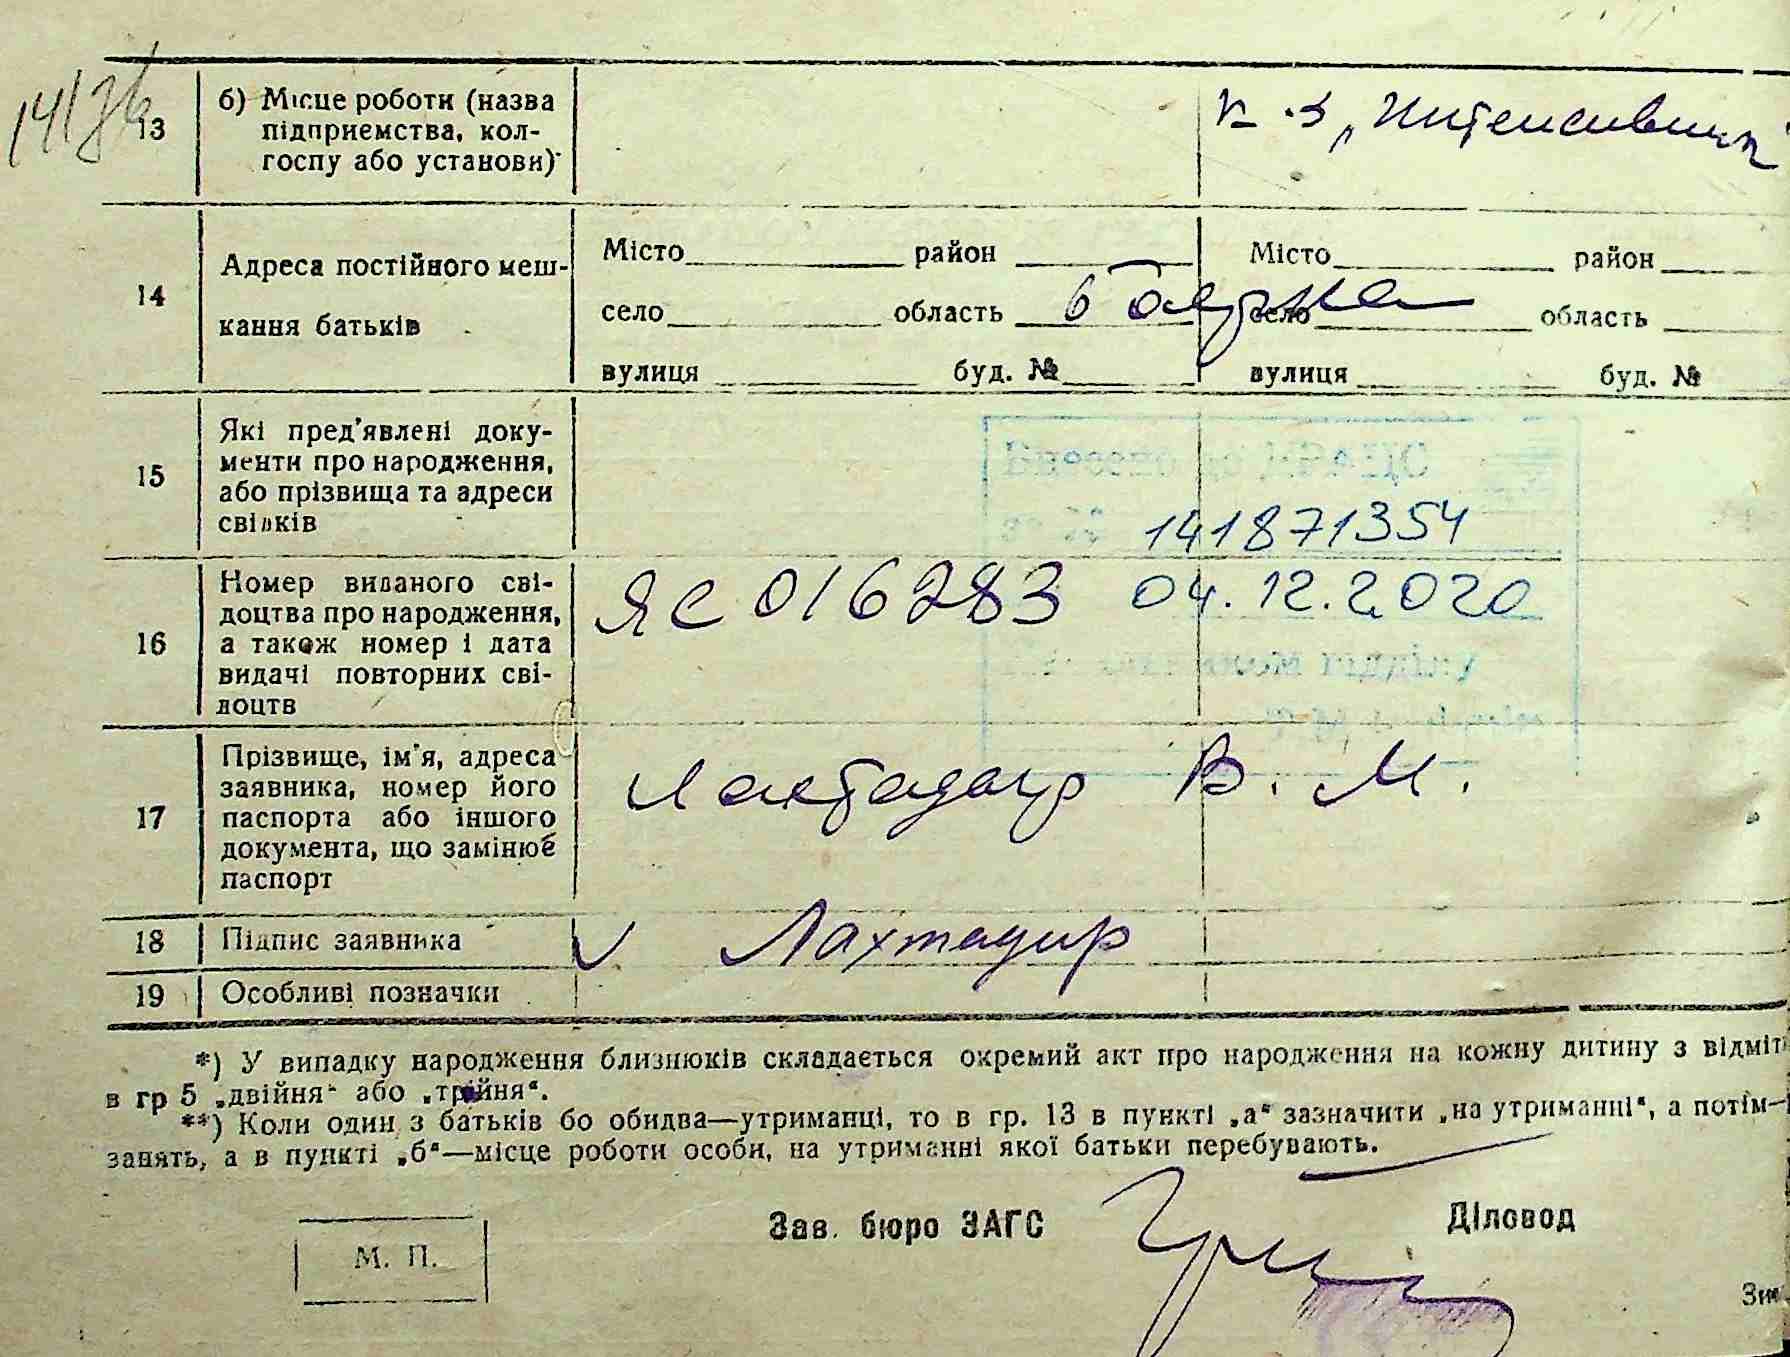 13 б) Місце роботи (назва
підприємства, кол-
госпу або установи)
к-з „Интенсивник"
14 Адреса постійного меш-
кання батьків
Місто район Місто район
село область село область
вулиця буд. № вулиця буд. №
15 Які пред'явлені доку-
менти про народження,
або прізвища та адреси
свідків
141871354
16 Номер виданого сві-
доцтва про народження,
а також номер і дата
видачі повторних сві-
доцтв
ЯС 016283 04.12.2020
відділу
17 Прізвище, ім'я, адреса
заявника, номер його
паспорта або іншого
документа, що замінює
паспорт
Лахтадир В. М.
18 Підпис заявника Лахтадир
19 Особливі позначки
*) У випадку народження близнюків складається окремий акт про народження на кожну дитину з відміт
в гр 5 „двійня" або „трійня".
**) Коли один з батьків бо обидва—утриманці, то в гр. 13 в пункті „а" зазначити „на утриманні", а потім—
занять, а в пункті „б"—місце роботи особи, на утриманні якої батьки перебувають.
Зав. бюро ЗАГС Діловод
М. П.